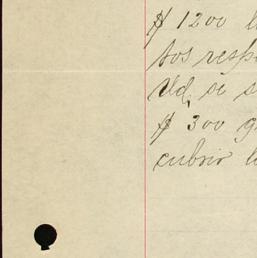 $ 1200 l
tos resp
Vd, si s
$ 300 g
cubrir l